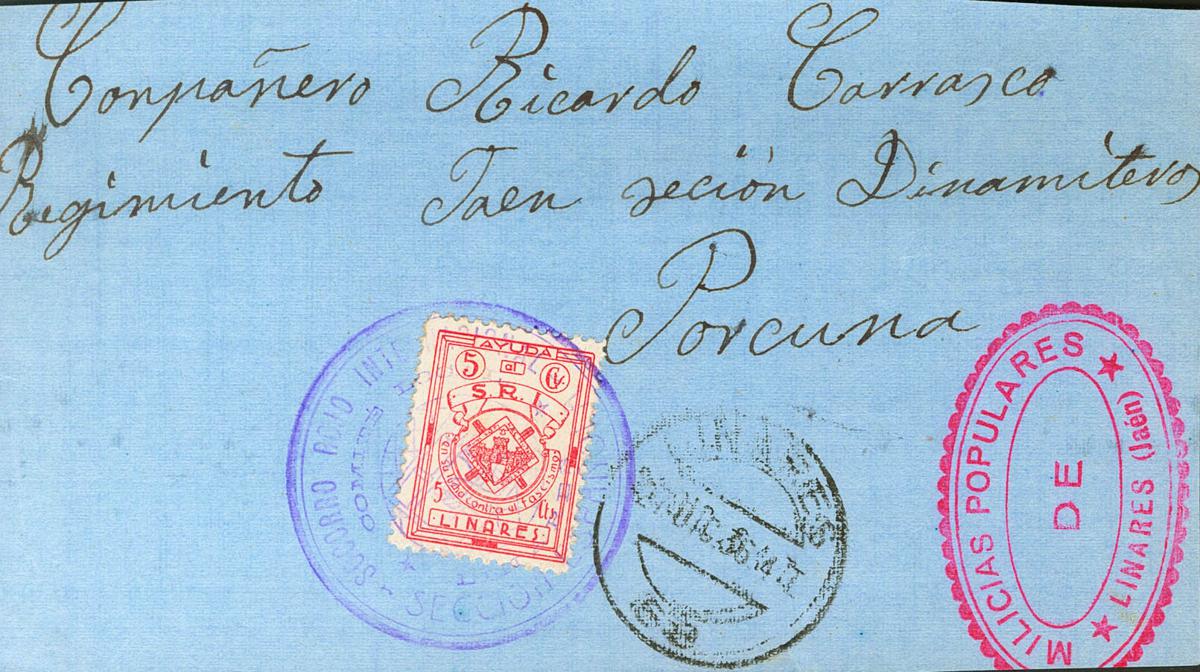 Conpañero Ricardo Carrasco
Regimiento Jaen seción Dinamiteros
Porcuna
AYUDA
5 al Cts.
S.R.I.
en su lucha contra el fascismo
5 cts
LINARES
SOCORRO ROJO INTE
COMITE
SECCION
LINARES
DIC 36
MILICIAS POPULARES
DE
LINARES (Jaén)